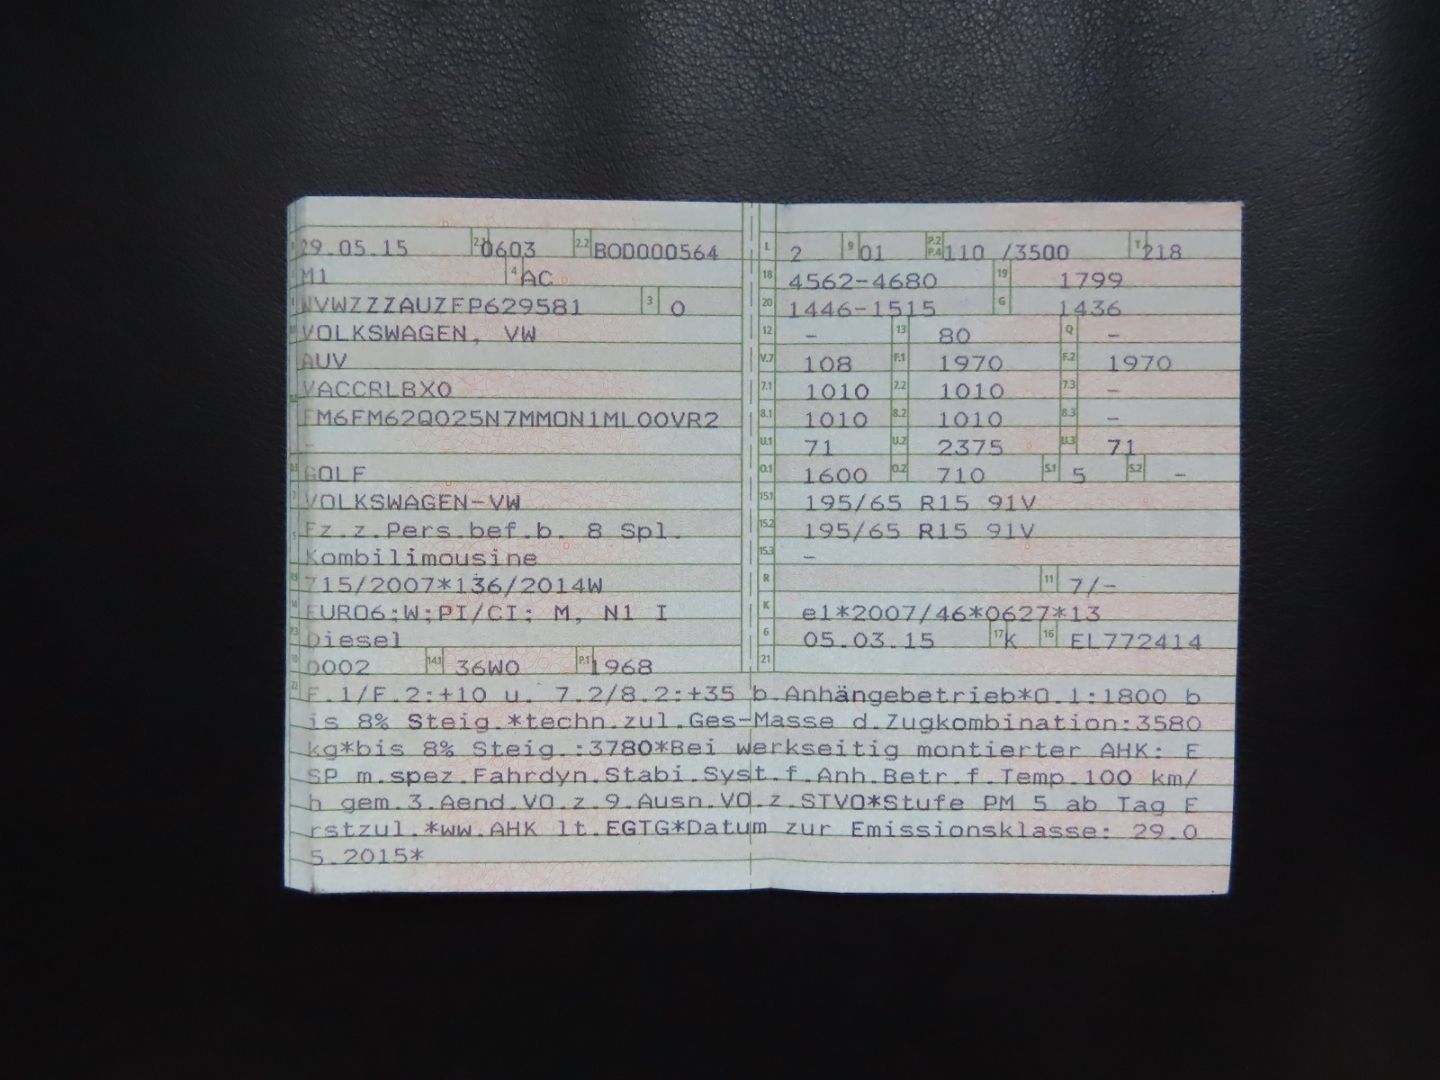 29.05.15 2.1 0603 2.2 BOD000564
M1 4 AC
WVWZZZAUZFP629581 3 0
VOLKSWAGEN, VW
AUV
VACCRLBX0
FM6FM62Q025N7MMON1ML00VR2
-
GOLF
VOLKSWAGEN-VW
Fz.z.Pers.bef.b. 8 Spl.
Kombilimousine
715/2007*136/2014W
EURO6;W;PI/CI; M, N1 I
Diesel
0002 14.1 36W0 P.1 1968
L 2 9 01 P.2 P.4 110 /3500 T 218
18 4562-4680 19 1799
20 1446-1515 G 1436
12 - 13 80 Q -
V.7 108 F.1 1970 F.2 1970
7.1 1010 7.2 1010 7.3 -
8.1 1010 8.2 1010 8.3 -
U.1 71 U.2 2375 U.3 71
O.1 1600 O.2 710 S.1 5 S.2 -
15.1 195/65 R15 91V
15.2 195/65 R15 91V
15.3 -
R 11 7/-
K e1*2007/46*0627*13
6 05.03.15 17 K 16 EL772414
21
22 F.1/F.2:+10 u. 7.2/8.2:+35 b.Anhängebetrieb*O.1:1800 b
is 8% Steig.*techn.zul.Ges-Masse d.Zugkombination:3580
kg*bis 8% Steig.:3780*Bei werkseitig montierter AHK: E
SP m.spez.Fahrdyn.Stabi.Syst.f.Anh.Betr.f.Temp.100 km/
h gem.3.Aend.VO.z.9.Ausn.VO.z.STVO*Stufe PM 5 ab Tag E
rstzul.*ww.AHK lt.EGTG*Datum zur Emissionsklasse: 29.0
5.2015*